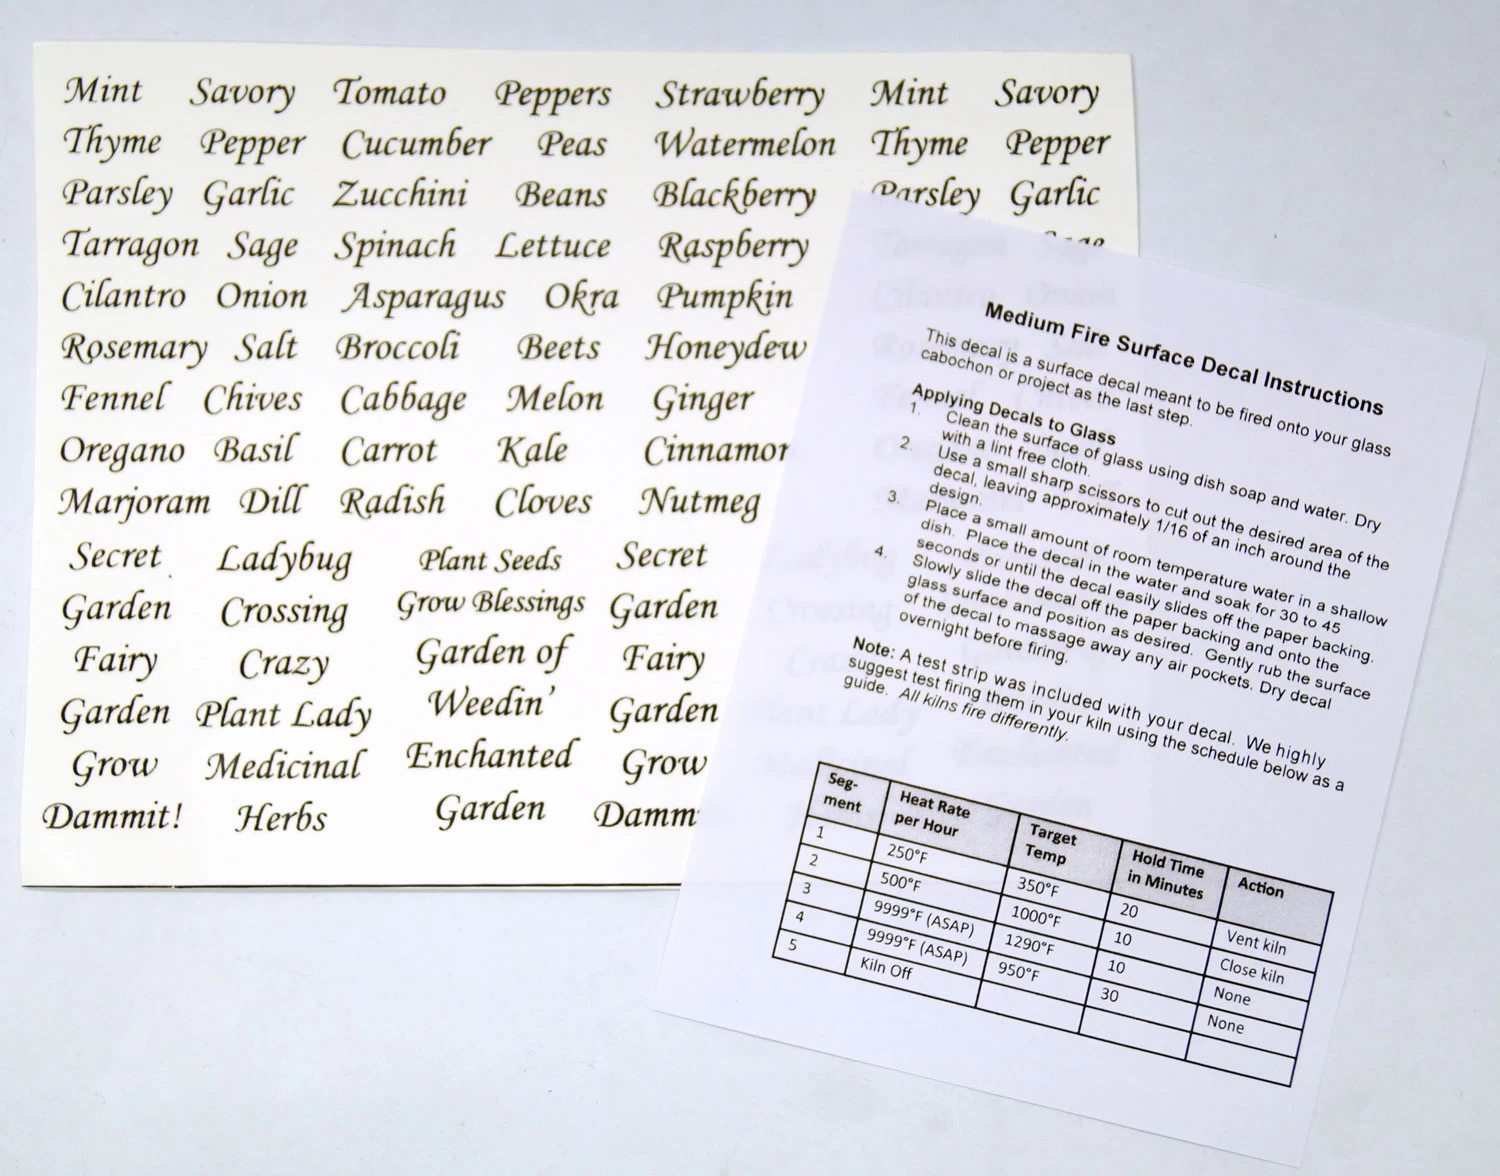 Mint Savory Tomato Peppers Strawberry Mint Savory
Thyme Pepper Cucumber Peas Watermelon Thyme Pepper
Parsley Garlic Zucchini Beans Blackberry Parsley Garlic
Tarragon Sage Spinach Lettuce Raspberry Tarragon Sage
Cilantro Onion Asparagus Okra Pumpkin Cilantro Onion
Rosemary Salt Broccoli Beets Honeydew
Fennel Chives Cabbage Melon Ginger
Oregano Basil Carrot Kale Cinnamon
Marjoram Dill Radish Cloves Nutmeg
Secret Ladybug Plant Seeds Secret Ladybug
Garden Crossing Grow Blessings Garden Crossing
Fairy Crazy Garden of Fairy
Garden Plant Lady Weedin' Garden Plant Lady
Grow Medicinal Enchanted Grow Medicinal Enchanted
Dammit! Herbs Garden Damm
Medium Fire Surface Decal Instructions
This decal is a surface decal meant to be fired onto your glass
cabochon or project as the last step.
Applying Decals to Glass
1. Clean the surface of glass using dish soap and water. Dry
with a lint free cloth.
2. Use a small sharp scissors to cut out the desired area of the
decal, leaving approximately 1/16 of an inch around the
design.
3. Place a small amount of room temperature water in a shallow
dish. Place the decal in the water and soak for 30 to 45
seconds or until the decal easily slides off the paper backing.
4. Slowly slide the decal off the paper backing and onto the
glass surface and position as desired. Gently rub the surface
of the decal to massage away any air pockets. Dry decal
overnight before firing.
Note: A test strip was included with your decal. We highly
suggest test firing them in your kiln using the schedule below as a
guide. All kilns fire differently.
Seg-ment Heat Rate per Hour Target Temp Hold Time in Minutes Action
1 250°F 350°F 20 Vent kiln
2 500°F 1000°F 10 Close kiln
3 9999°F (ASAP) 1290°F 10 None
4 9999°F (ASAP) 950°F 30 None
5 Kiln Off